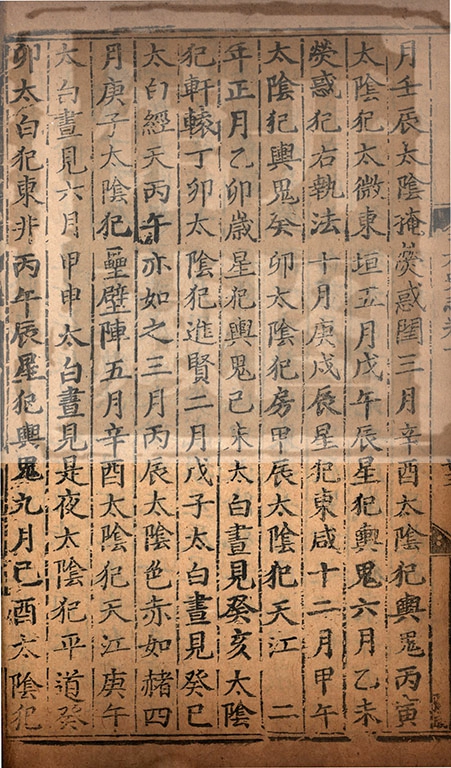 月壬辰太陰掩熒惑閏三月辛酉太陰犯輿鬼丙寅
太陰犯太微東垣五月戊午辰星犯輿鬼六月乙未
熒惑犯右執法十月庚戌辰星犯東咸十二月甲午
太陰犯輿鬼癸卯太陰犯房甲辰太陰犯天江二
年正月乙卯歲星犯輿鬼己未太白晝見癸亥太陰
犯軒轅丁卯太陰犯進賢二月戊子太白晝見癸巳
太白經天丙午亦如之三月丙辰太陰色赤如赭四
月庚子太陰犯壘壁陣五月辛酉太陰犯天江庚午
太白晝見六月甲申太白晝見是夜太陰犯平道癸
卯太白犯東井丙午辰星犯輿鬼九月己酉太陰犯